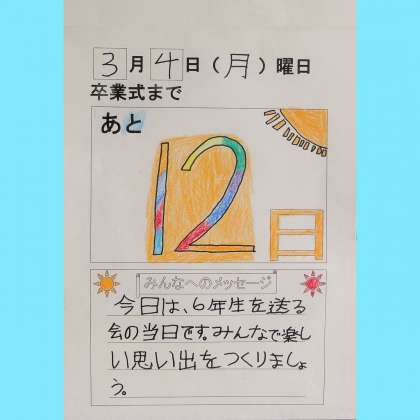 3月4日(月)曜日
卒業式まで
あと
12日
みんなへのメッセージ
今日は、6年生を送る
会の当日です。みんなで楽し
い思い出をつくりましょ
う。